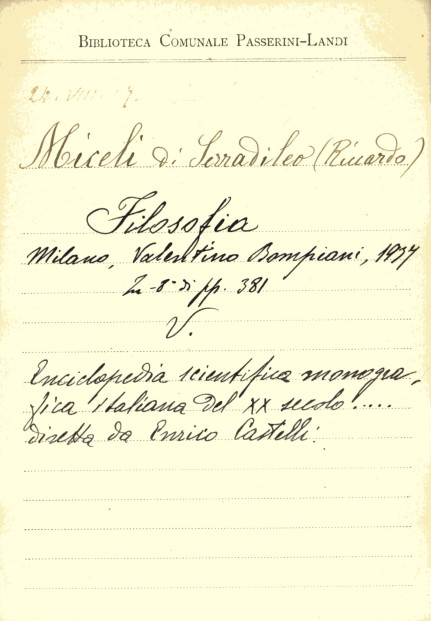 BIBLIOTECA COMUNALE PASSERINI-LANDI
Miceli di Serradileo (Riccardo)
Filosofia
Milano, Valentino Bompiani, 1937
In-8° di pp. 381
V.
Enciclopedia scientifica monogra-
fica italiana del XX secolo....
diretta da Enrico Castelli.